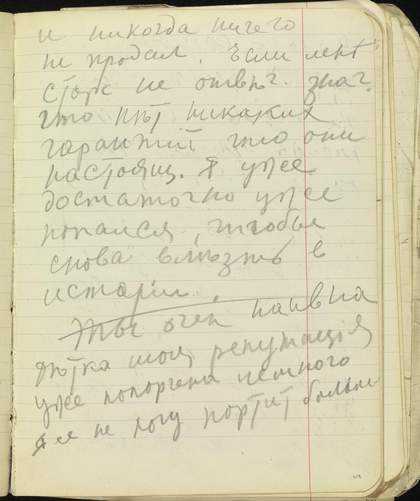 и никогда ничего
не продал. Если лент
сторс не отвѣч. знач.
что нѣт никаких
гарантій что они
настоящ. Я уже
достаточно уже
попался, чтобы
снова влѣзть в
исторіи.
Ты очен наивна
дѣтка моя репутація
уже попорчена немного
я ее не могу портит больше